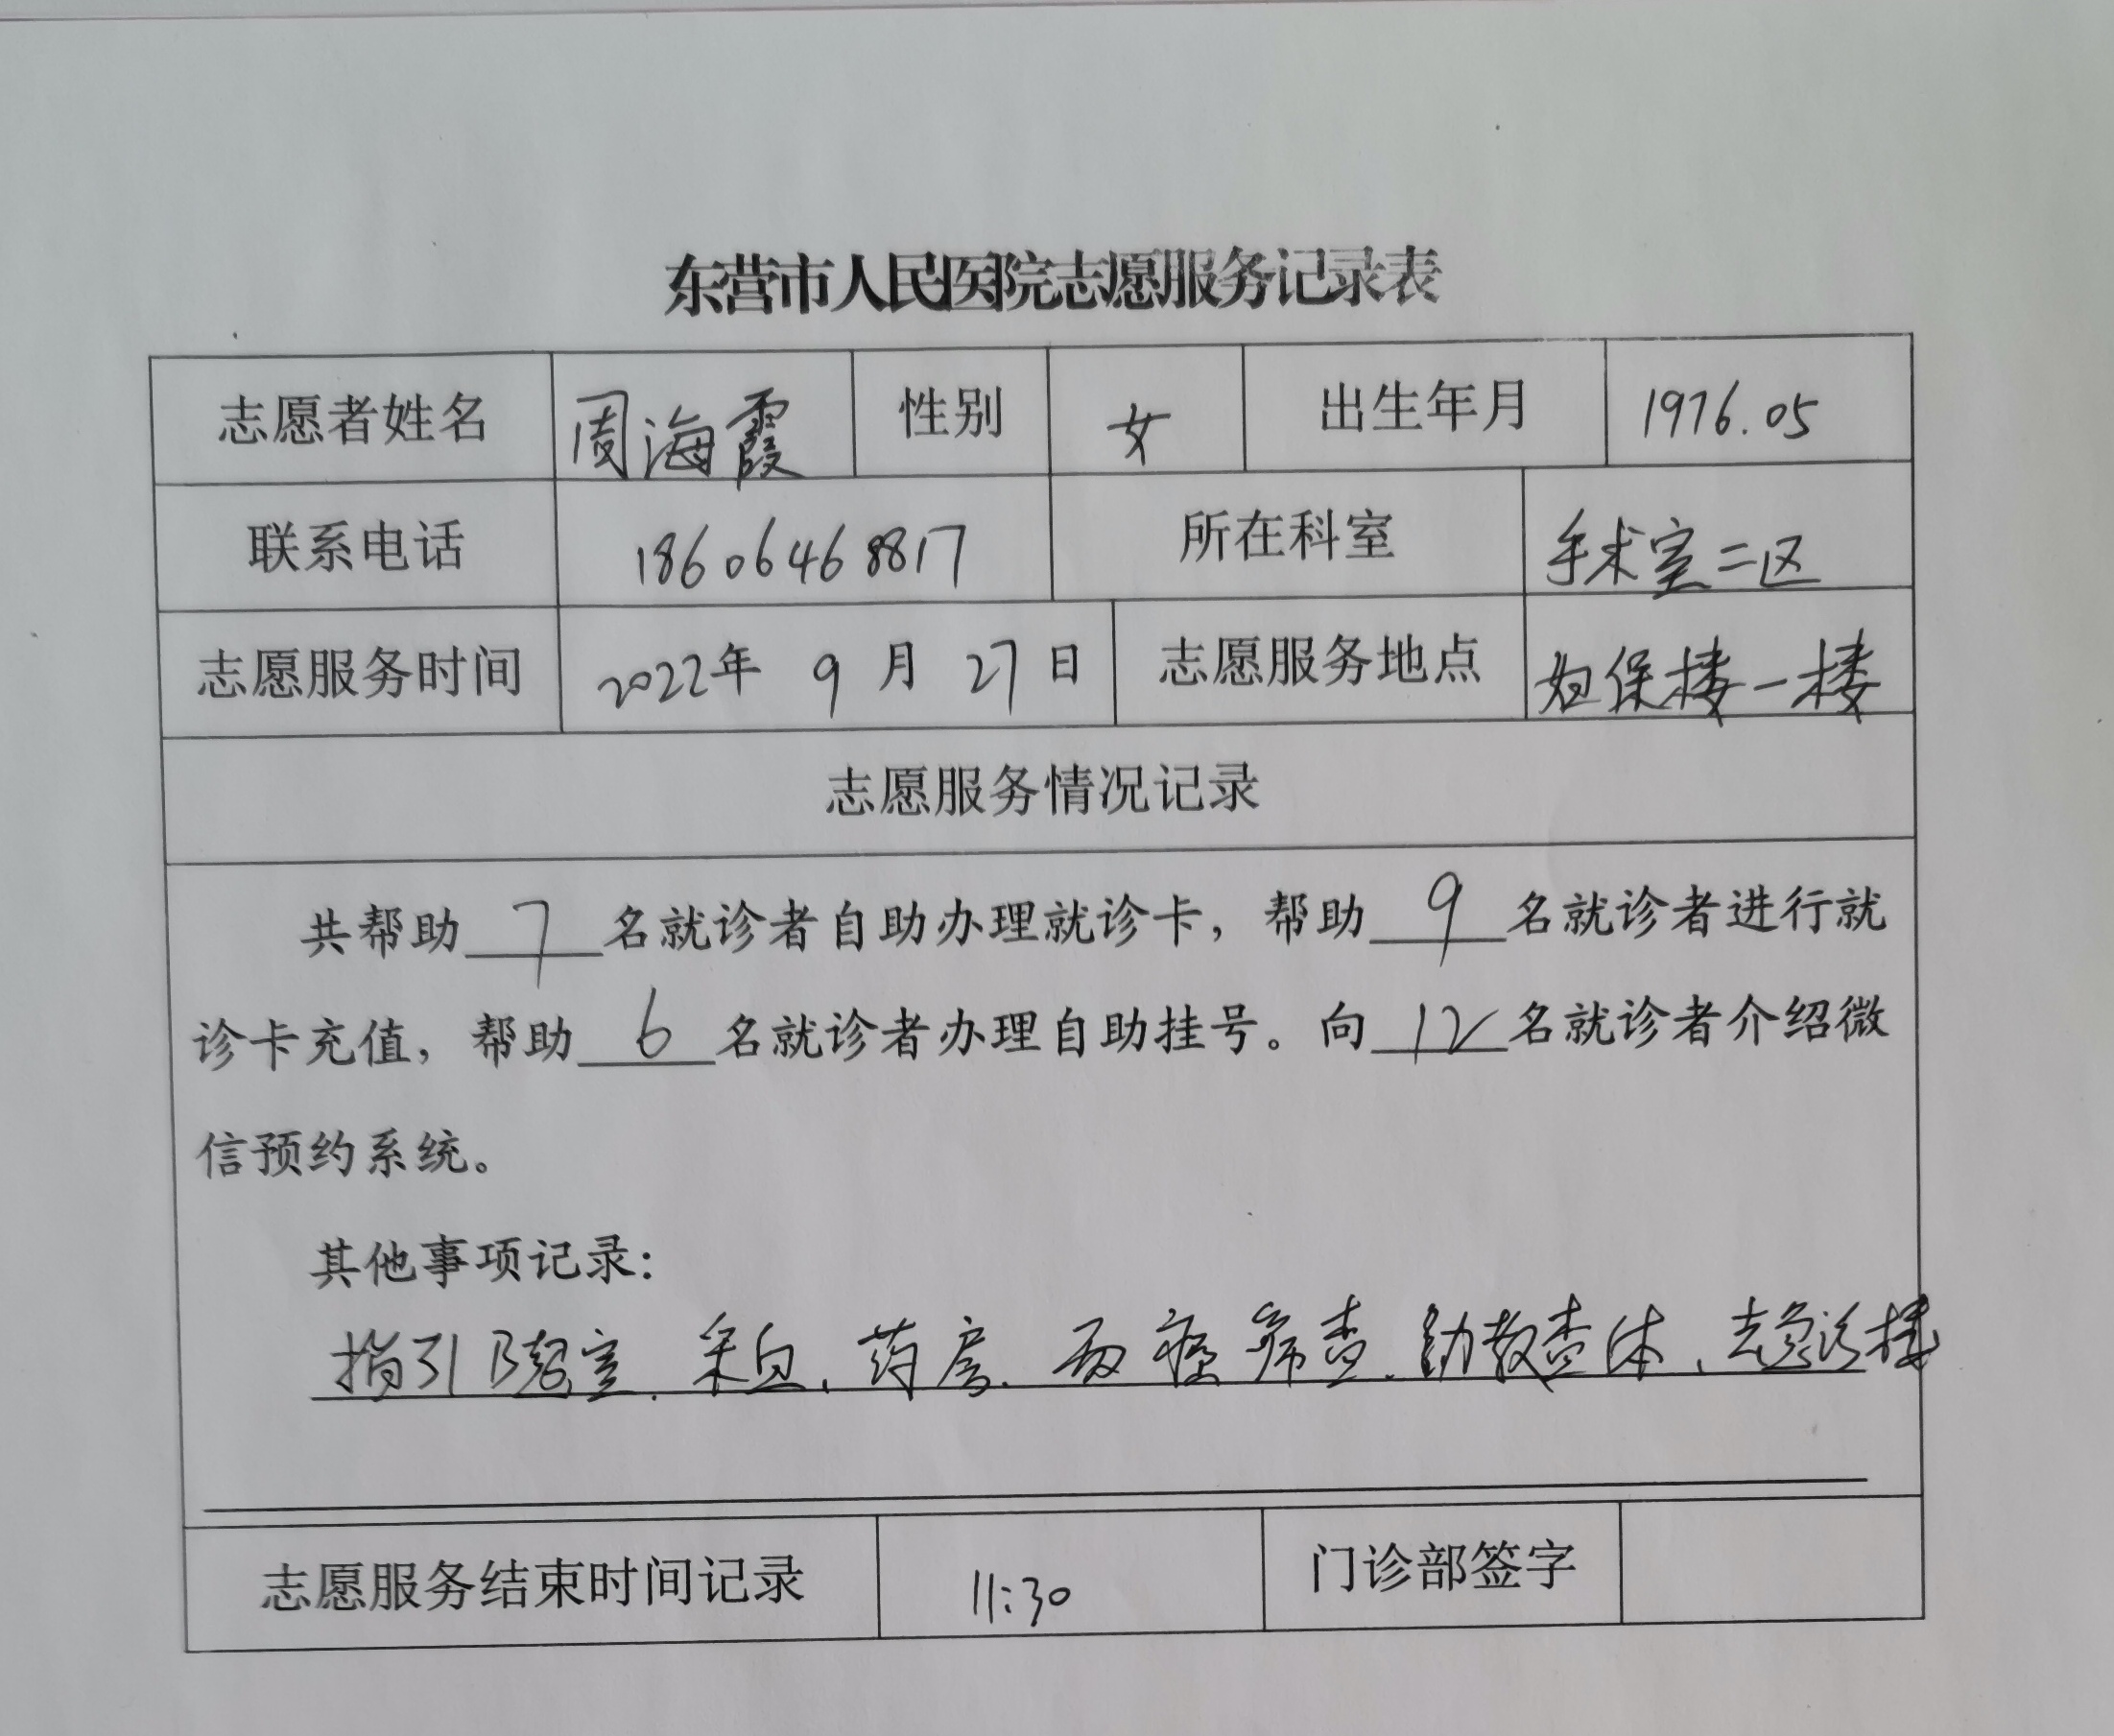 东营市人民医院志愿服务记录表
志愿者姓名 周海霞 性别 女 出生年月 1976.05
联系电话 18606468817 所在科室 手术室二区
志愿服务时间 2022年 9 月 27 日 志愿服务地点 妇保楼一楼
志愿服务情况记录
共帮助 7 名就诊者自助办理就诊卡，帮助 9 名就诊者进行就
诊卡充值，帮助 6 名就诊者办理自助挂号。向 12 名就诊者介绍微
信预约系统。
其他事项记录：
指引B超室、采血、药房、两癌筛查、幼教查体、去急诊楼
志愿服务结束时间记录 11:30 门诊部签字